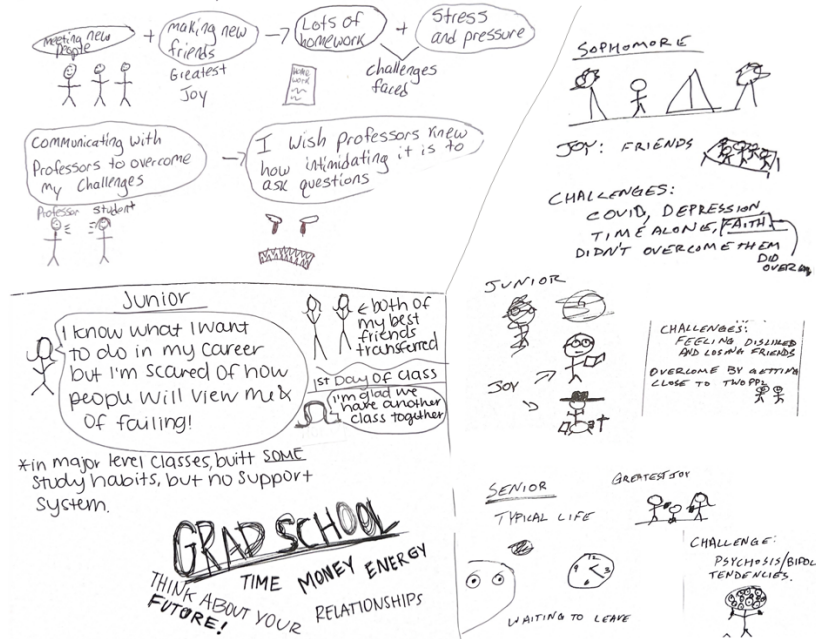 Meeting new
people
+
making new
friends
Lots of
homework
+
Stress
and pressure
Greatest
Joy
HOME
WORK
challenges
faced
Communicating with
Professors to overcome
my Challenges
I Wish professors knew
how intimidating it is to
ask questions
Professor
Student
Junior
I know what I want
to do in my career
but I'm scared of how
people will view me &
of failing!
both of
my best
friends
transferred
1st Day of class
I'm glad we
have another
class together
*in major level classes, built SOME
study habits, but no support
system.
GRAD SCHOOL
TIME MONEY ENERGY
THINK ABOUT YOUR
FUTURE!
RELATIONSHIPS
SOPHOMORE
JOY: FRIENDS
CHALLENGES:
COVID, DEPRESSION,
TIME ALONE, FAITH.
DIDN'T OVERCOME THEM
DID
OVERCM
JUNIOR
JOY
CHALLENGES:
FEELING DISLIKED
AND LOSING FRIENDS
OVERCOME BY GETTING
CLOSE TO TWO PPL
SENIOR
TYPICAL LIFE
12
9 3
6
WAITING TO LEAVE
GREATEST JOY
CHALLENGE:
PSYCHOSIS/BIPOL
TENDENCIES.